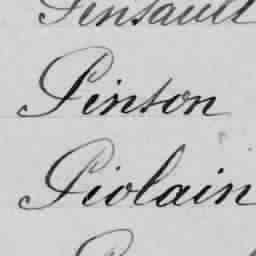 Pensault
Pinton
Piolain